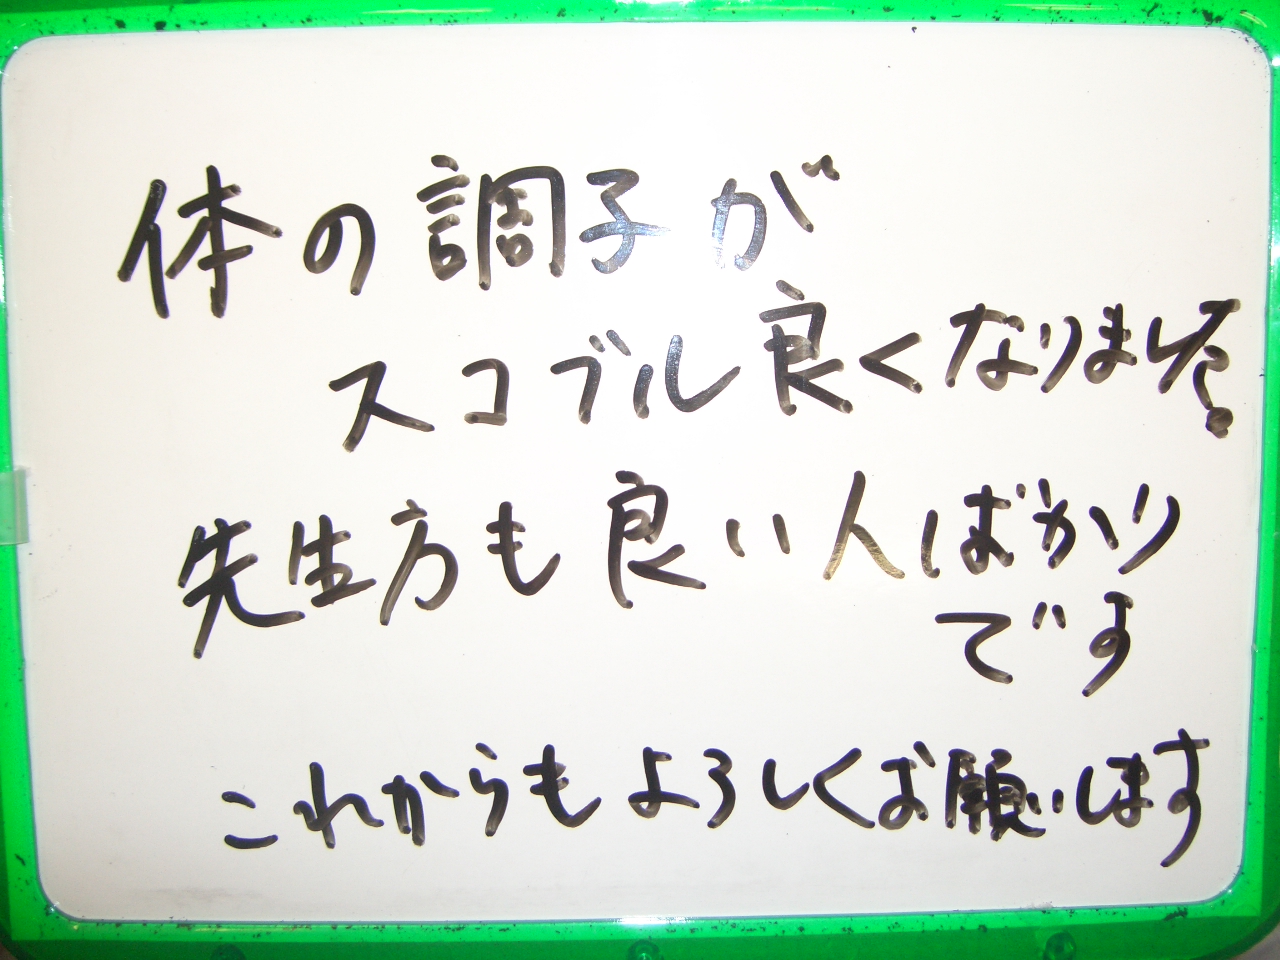 体の調子が
スコブル良くなりました。
先生方も良い人ばかり
です
これからもよろしくお願いします